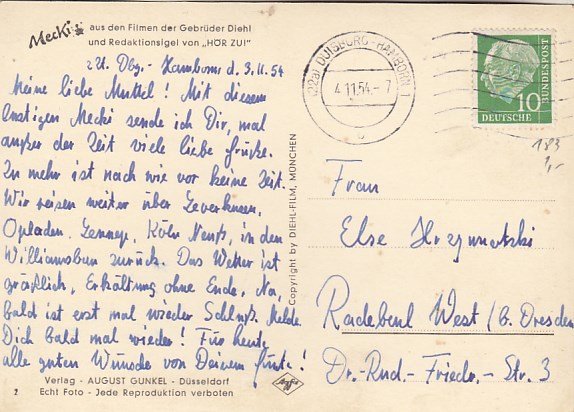 Mecki aus den Filmen der Gebrüder Diehl
und Redaktionsigel von „HÖR ZU!"
z. Zt. Dbg.- Hamborn d. 3.11.54
Meine liebe Muttel! Mit diesem
lustigen Mecki sende ich Dir, mal
außer der Zeit viele liebe Grüße.
Zu mehr ist nach wie vor keine Zeit.
Wir reisen weiter über Leverkusen,
Opladen, Lennep, Köln Neuß, in den
zurück. Das Wetter ist
gräßlich, Erkältung ohne Ende. Na,
bald ist erst mal wieder Schluß. Melde
Dich bald mal wieder! Für heute
alle guten Wünsche von Deinem
Verlag - AUGUST GUNKEL - Düsseldorf
2 Echt Foto - Jede Reproduktion verboten
Copyright by DIEHL-FILM, MÜNCHEN
Agfa
(22a) DUISBURG-HAMBORN 1
4.11.54.-7
DEUTSCHE
BUNDESPOST
10
183
1,-
Frau
Else
Radebeul West/b. Dresden
Dr.-Rud.- Friedr.- Str. 3